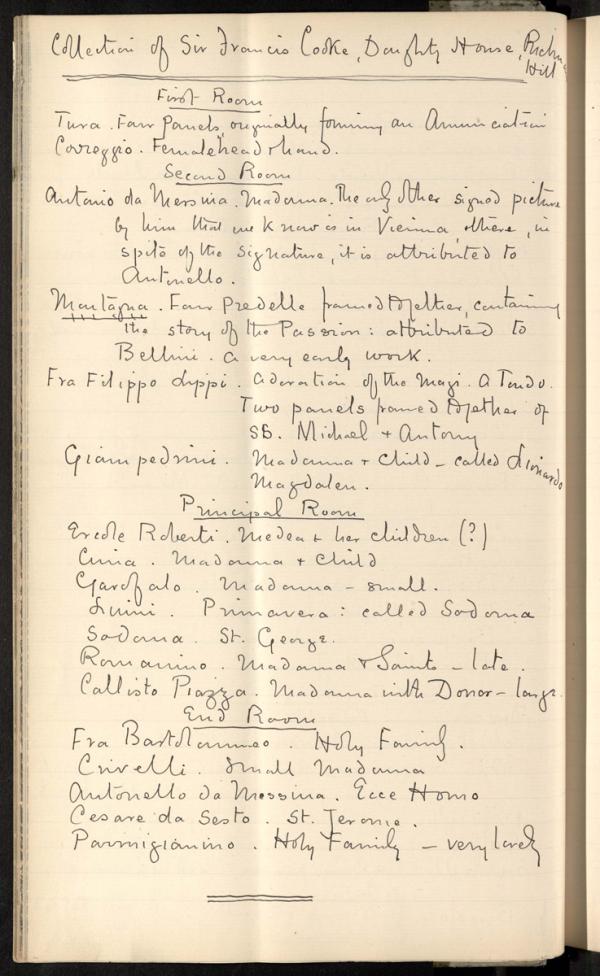 Collection of Sir Francis Cooke, Doughty House, Richm
Hill
First Room
Tura. Four panels, originally forming an Annunciation
Correggio. Female head & hand.
Second Room
Antonio da Messina. Madonna. The only other signed picture
by him that we know is in Vienna, where, in
spite of the signature, it is attributed to
Antonello.
Montagna. Four predelle framed together, containing
the story of the Passion: attributed to
Bellini. a very early work.
Fra Filippo Lippi. Adoration of the Magi. A Tondo.
Two panels framed together of
SS. Michael & Antony
Giampedrini. Madonna & Child – called Lionardo
Magdalen.
Principal Room
Ercole Roberti. Medea & her children (?)
Cima. Madonna & Child
Garofalo. Madonna – small.
Luini. Primavera: called Sodoma
Sodoma. St. George.
Romanino. Madonna & Saints – late.
Callisto Piazza. Madonna with Donor – large.
End Room
Fra Bartolommeo. Holy Family.
Crivelli. Small Madonna
Antonello da Messina. Ecce Homo
Cesare da Sesto. St. Jerome.
Parmigianino. Holy Family – very lovely